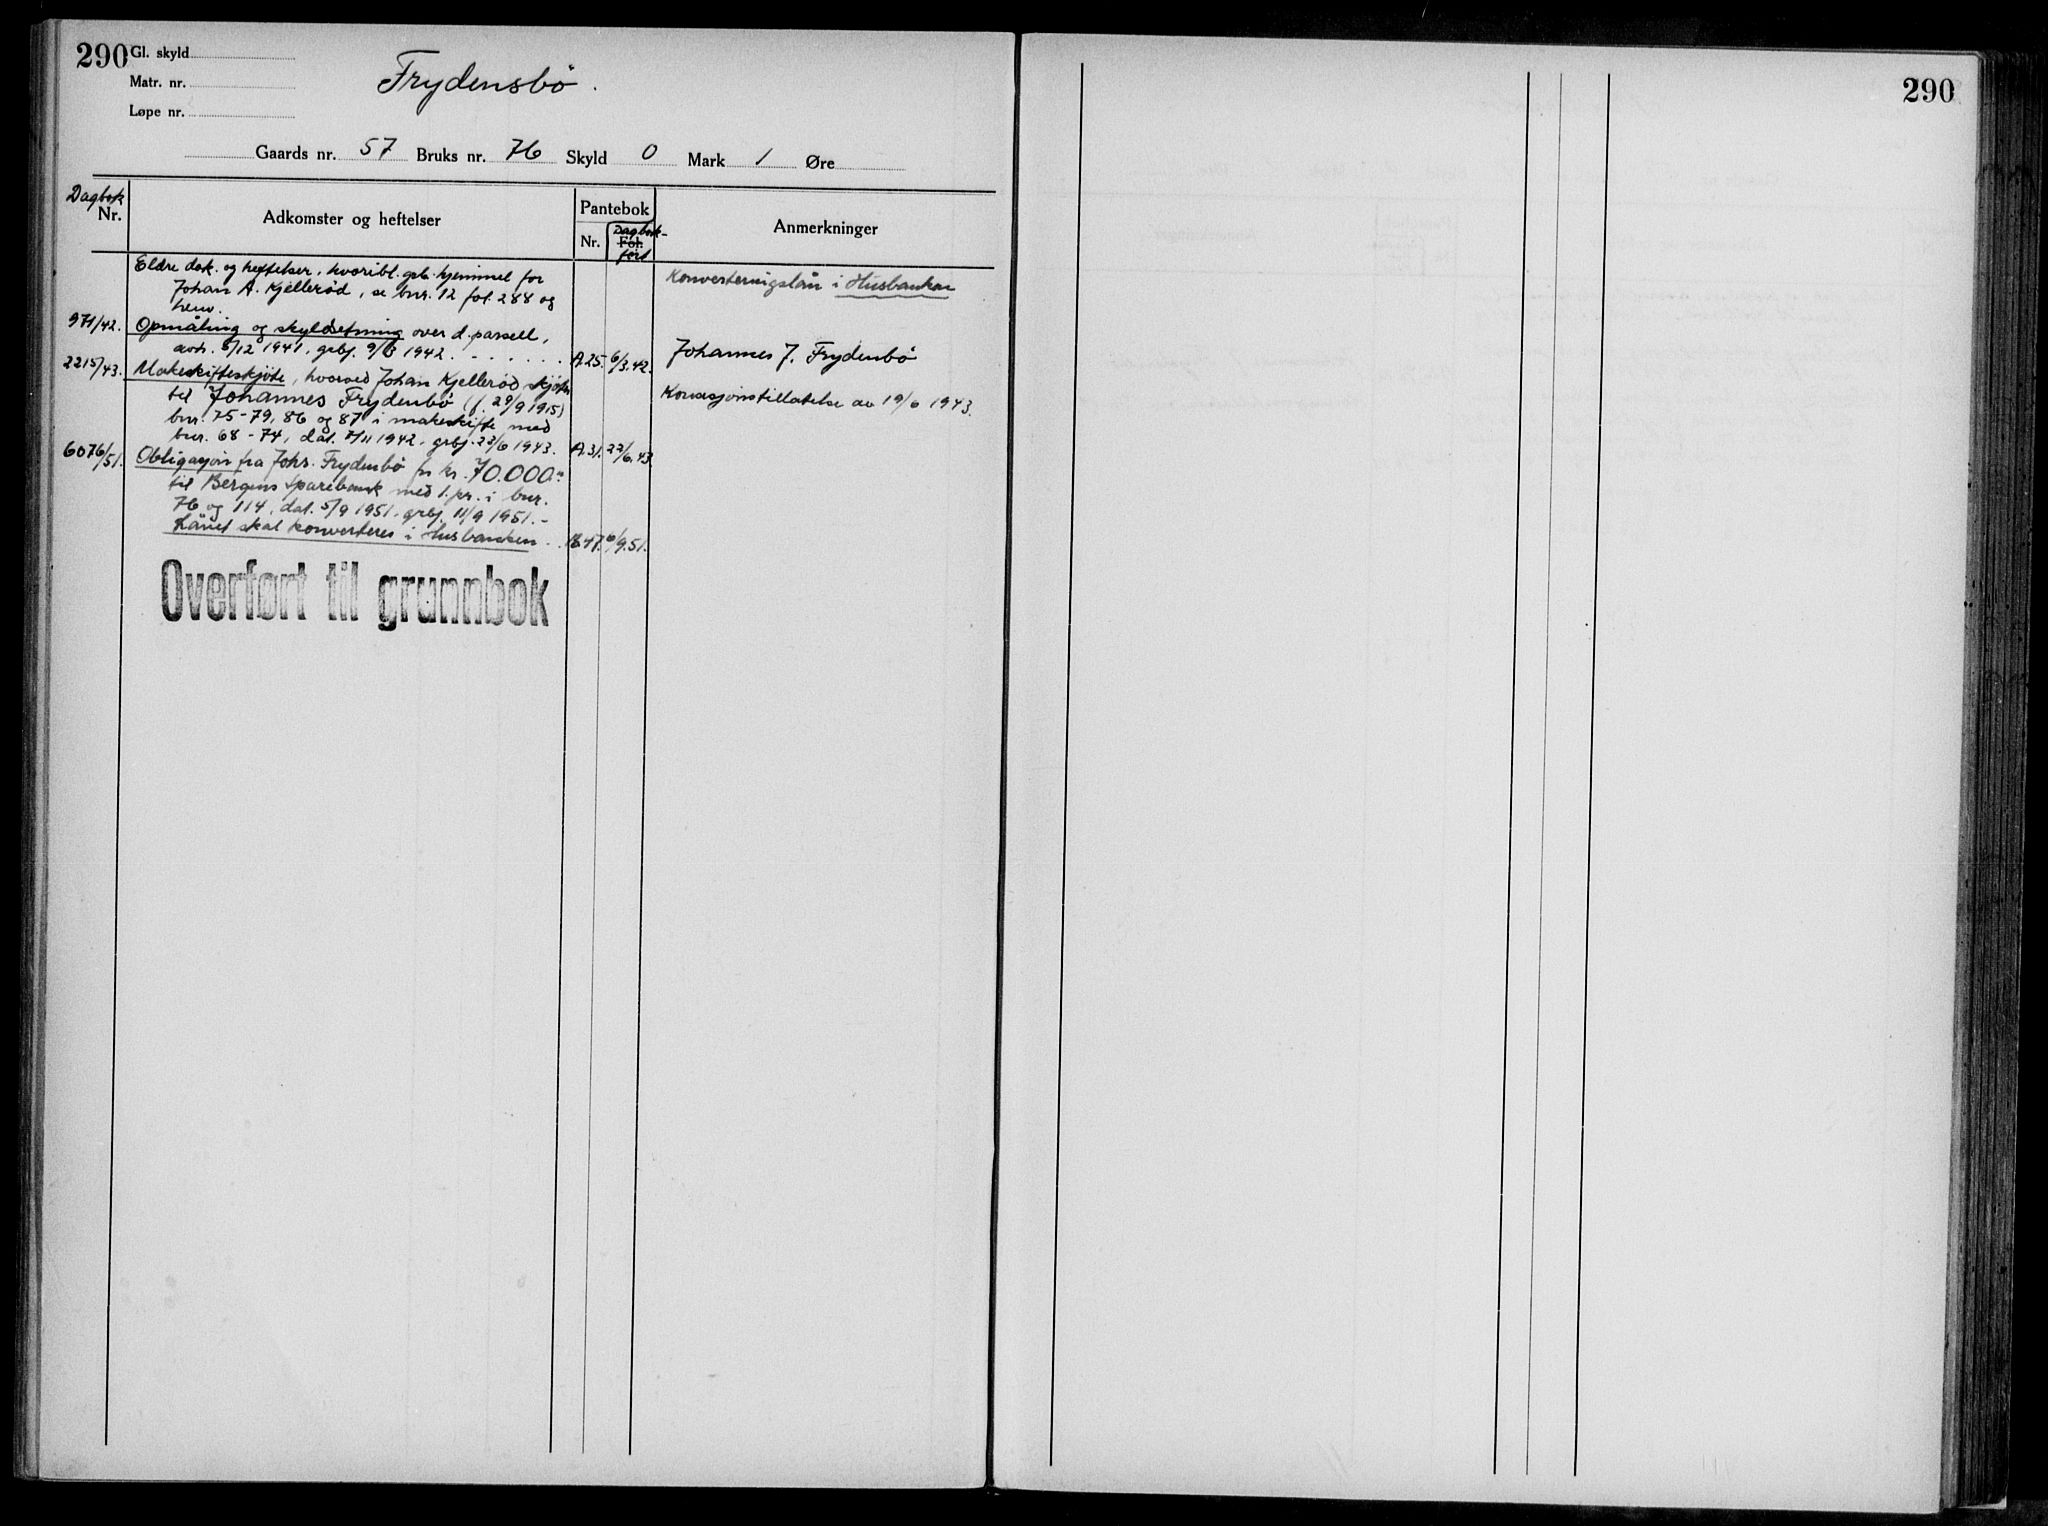 290
Gl. skyld
Matr. nr.
Løpe nr.
Frydensbö.
Gaards nr. 57 Bruks nr. 76 Skyld 0 Mark 1 Øre
Dagbok
Nr.
Adkomster og heftelser
Pantebok
Nr.
Dagbok-
Fol.
ført
Anmerkninger
Eldre dok. og heftelser, hvoribl. grb. hjemmel for
Johan A. Kjelleröd, se bnr. 12 fol. 288 og
henv.
Konverteringslån i Husbanken
971/42. Opmåling og skyldsetning over d. parsell,
avh. 5/12 1941, grbj. 9/3 1942. A.25. 6/3.42.
Johannes J. Frydenbö
2215/43. Makeskifteskjöte, hvorved Johan Kjelleröd skjöter
til Johannes Frydenbö (f. 29/9 1915)
Konsesjonstillatelse av 19/6 1943.
bnr. 75-79, 86 og 87 i makeskifte med
bnr. 68-74, dat. 7/11 1942, grbj. 23/6 1943. A.31. 22/6.43.
6076/51. Obligasjon fra Johs. Frydenbö for kr. 70.000.-
til Bergens Sparebank med 1. pr. i bnr.
76 og 114, dat. 5/9 1951, grbj. 11/9 1951.-
Lånet skal konverteres i Husbanken. B.47. 6/9.51.
Overført til grunnbok
290